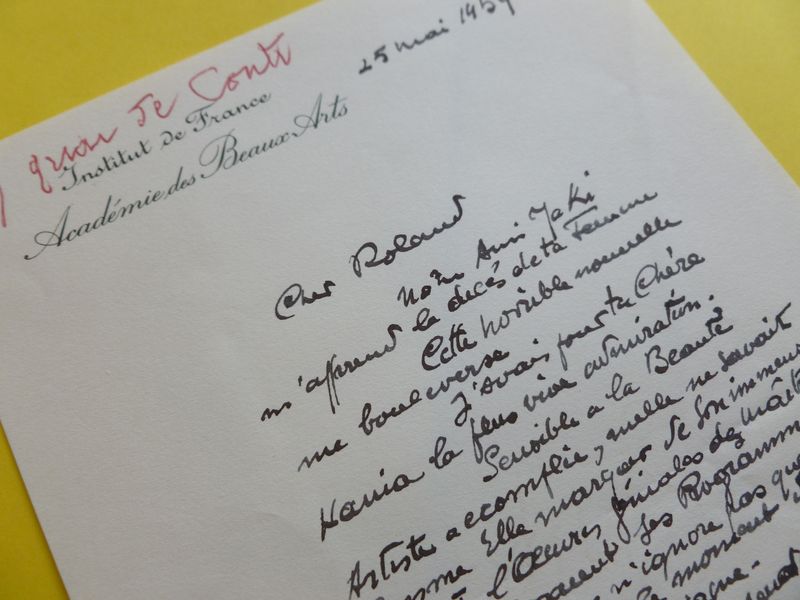 25 mai 1959
quai de Conti
Institut de France
Académie des Beaux Arts
Cher Roland
Notre Ami Jaki
m'apprend le décès de ta Femme
Cette horrible nouvelle
me bouleverse
J'avais pour ta Chère
Hania la plus vive admiration.
Sensible a la Beauté
Artiste accomplie, nulle ne savait
Elle marquer de son immense
l'Œuvres géniales des Maîtres
les Programmes
n'ignore pas que
le moment